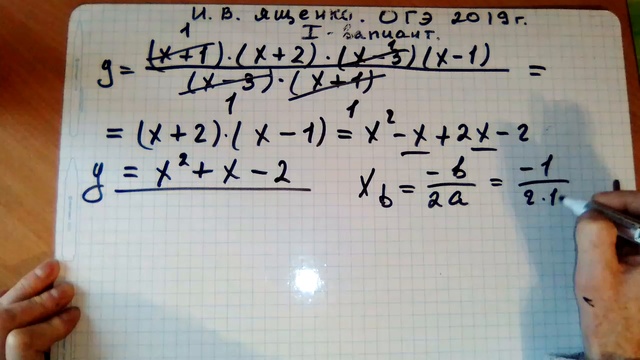 И. В. Ященко. ОГЭ 2019г.
I - вариант.
y = (x+1)·(x+2)·(x-3)(x-1) / (x-3)·(x+1) =
= (x+2)·(x-1) = x² - x + 2x - 2
y = x² + x - 2
x_b = -b / 2a = -1 / 2·1